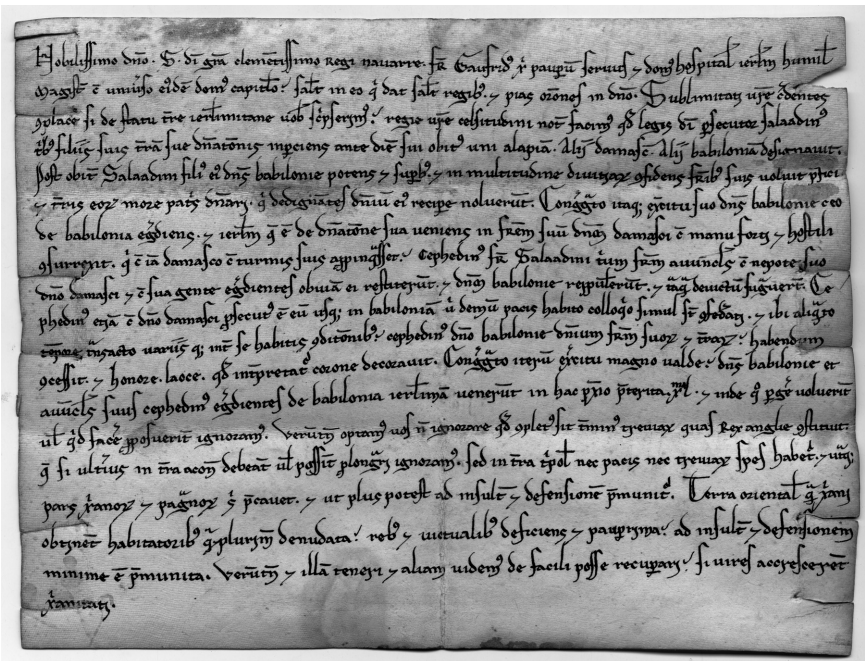 Nobilissimo dño. S. dī grā clemētissimo regi navarre. fr̄ Gaufrid' χ̄ paupū servus ⁊ dom' hospital' ierl̄m humil'
magist' ē uniu'so ei'dē dom' capitl̄o: sal't in eo q̇ dat sal't regib'. ⁊ pias or̄ones in dño. Sublimitati vr̄e c̄dentes
9placē si de statu tr̄e ierl̄imitane vob' sc̄pserim': regie vr̄e celsitudini not' facim' qd' legis dī p̄secutor salaadin'
filiis suis tr̄ā sue dn̄atōnis inp̄ciens ante diē sui obit' uni alapiā. Alij damasc̄. Alij babiloniā designavit.
Post obit' Salaadini fili' ei' dn̄s babilonie potens ⁊ supb'. ⁊ in multitudine divitiaꝝ 9fidens fr̄ib' suis voluit p̄fici
⁊ tr̄is eoꝝ more pat's dn̄ari. q̇ dedignātes dn̄iū ei' recipe noluerūt. Cong̃gato itaq; ex̄citu suo dn̄s babilonie
de babilonia eg̃diens. ⁊ ierl̄m q̄ ē de dn̄atōne sua veniens in fr̄em suū dn̄m damasci ē manu forti ⁊ hostili
9surrexit. q̇ ē iā damasco ē turmis suis appinq̃sset: Cephedin' fr̄ Salaadini it̄um fr̄am avūcl's ē nepote suo
dño damasci ⁊ ē sua gente eg̃dientes obviā ei restiterūt. ⁊ dn̄m babilonie reppulerūt. ⁊ tāq̃ devictū fugiuerūt. Ce
phedin' etiā ē dño damasci p̄secut' ē eū usq; in babiloniā. ū demū pacis habito colloq̇o simul st̄ 9fed'ati. ⁊ ibi aliq̃to
tēpore t̃nsacto variis q; int̄ se habitis 9ditionib': cephedin' dño babilonie dn̄ium fr̄am suoꝝ ⁊ tr̄aꝝ: habendum
9cessit. ⁊ honore. laoce. qd' int̄pretat' corone decoravit. Cong̃gato iterū ex̄citu magno valde: dn̄s babilonie et
avūcl's suus cephedin' eg̃dientes de babilonia ierl̄imā venerūt in hac p̄xio p̄terita. ⁊ inde q̇ p̄g'e voluerīt
ul' q̇d face' p̄posuerit ignoram'. verūtn̄ optam' vos ñ ignorare qd' 9plet' sit t̄min' treviaꝝ quas Rex anglie 9stituit.
q̄ si ult'ius in tr̄a acon' debeāt ul' possīt p̄long̃ri ignoram'. sed in tr̄a t̄pol' nec pacis nec treviaꝝ spes habet'. ⁊ ut̃q;
pars χ̄anoꝝ ⁊ pag̃noꝝ s' p̄cavet. ⁊ ut plus potest ad insult' ⁊ defensionē p̄munit'. Terra oriental' q̃ χ̄ani
obtinēt habitatorib' q̃plurim' denudata: reb' ⁊ victualib' deficiens ⁊ paupr̄ima: ad insult' ⁊ defensionem
minime ē p̄munita. verūtn̄ ⁊ illā teneri ⁊ aliam videm' de facili posse recuperari: si vires accrescerēt
χ̄anitati.